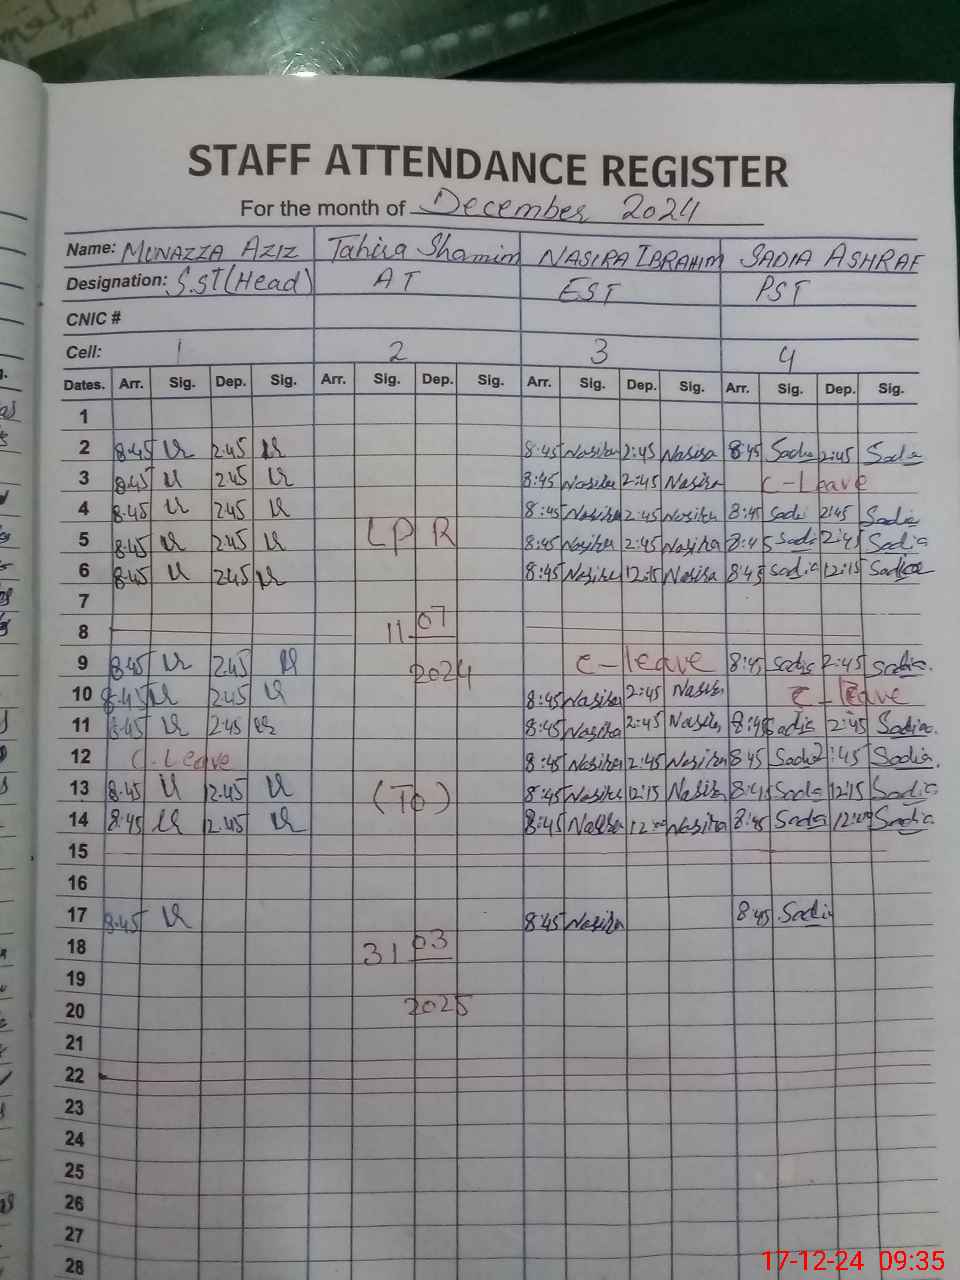 STAFF ATTENDANCE REGISTER
For the month of December 2024
Name: MUNAZZA AZIZ Tahira Shamim NASIRA IBRAHIM SADIA ASHRAF
Designation: S.ST(Head) AT EST PST
CNIC #
Cell: 1 2 3 4
Dates. Arr. Sig. Dep. Sig. Arr. Sig. Dep. Sig. Arr. Sig. Dep. Sig. Arr. Sig. Dep. Sig.
1
2 8.45 2.45 8:45 Nasira 2:45 Nasira 8:45 Sadia 2:45 Sadia
3 8.45 2.45 8:45 Nasira 2:45 Nasira C-Leave
4 8.45 2.45 8:45 Nasira 2:45 Nasira 8:45 Sadi 2:45 Sadia
5 8.45 2.45 LPR 8:45 Nasira 2:45 Nasira 8:45 Sadi 2:45 Sadia
6 8.45 2.45 8:45 Nasira 12:15 Nasira 8:45 Sadia 12:15 Sadia
7
8 11 07
9 8.45 2.45 2024 C-leave 8:45 Sadia 2:45 Sadia.
10 8.45 2.45 8:45 Nasira 2:45 Nasira C-Leave
11 8.45 2.45 8:45 Nasira 2:45 Nasira 8:45 Sadia 2:45 Sadia.
12 C-Leave 8:45 Nasira 2:45 Nasira 8:45 Sadia 2:45 Sadia.
13 8.45 12.45 (To) 8:45 Nasira 12:15 Nasira 8:45 Sada 12:15 Sadia
14 8:45 12.45 8:45 Nasira 12:00 Nasira 8:45 Sadia 12:00 Sadia
15
16
17 8.45 8:45 Nasira 8:45 Sadia
18 31 03
19
20 2025
21
22
23
24
25
26
27
28
17-12-24 09:35